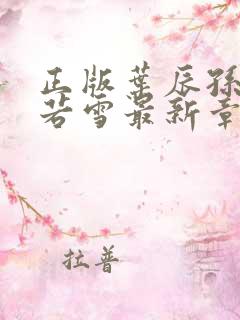 正版叶辰孙
若雪最新章
拉普